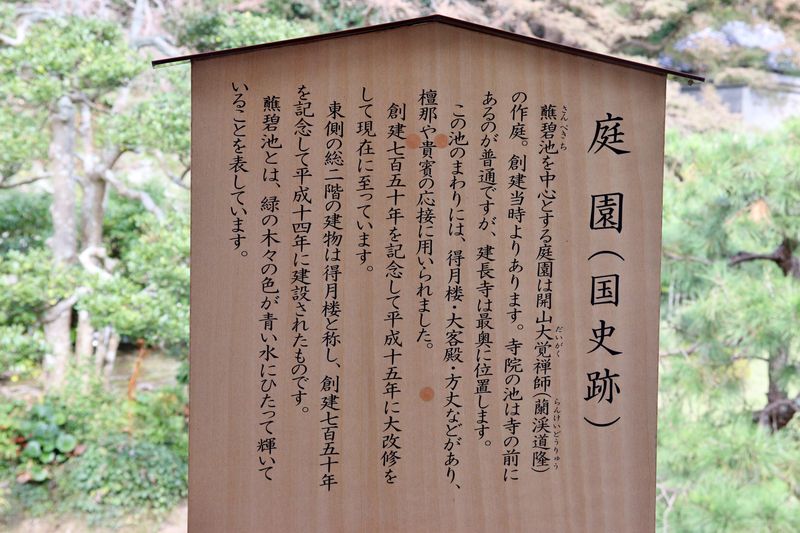 庭園（国史跡）
さんぺきち
蘸碧池を中心とする庭園は開山大覚禅師（蘭渓道隆）
だいがく
らんけいどうりゅう
の作庭。創建当時よりあります。寺院の池は寺の前に
あるのが普通ですが、建長寺は最奥に位置します。
この池のまわりには、得月楼・大客殿・方丈などがあり、
檀那や貴賓の応接に用いられました。
創建七百五十年を記念して平成十五年に大改修を
して現在に至っています。
東側の総二階の建物は得月楼と称し、創建七百五十年
を記念して平成十四年に建設されたものです。
蘸碧池とは、緑の木々の色が青い水にひたって輝いて
いることを表しています。